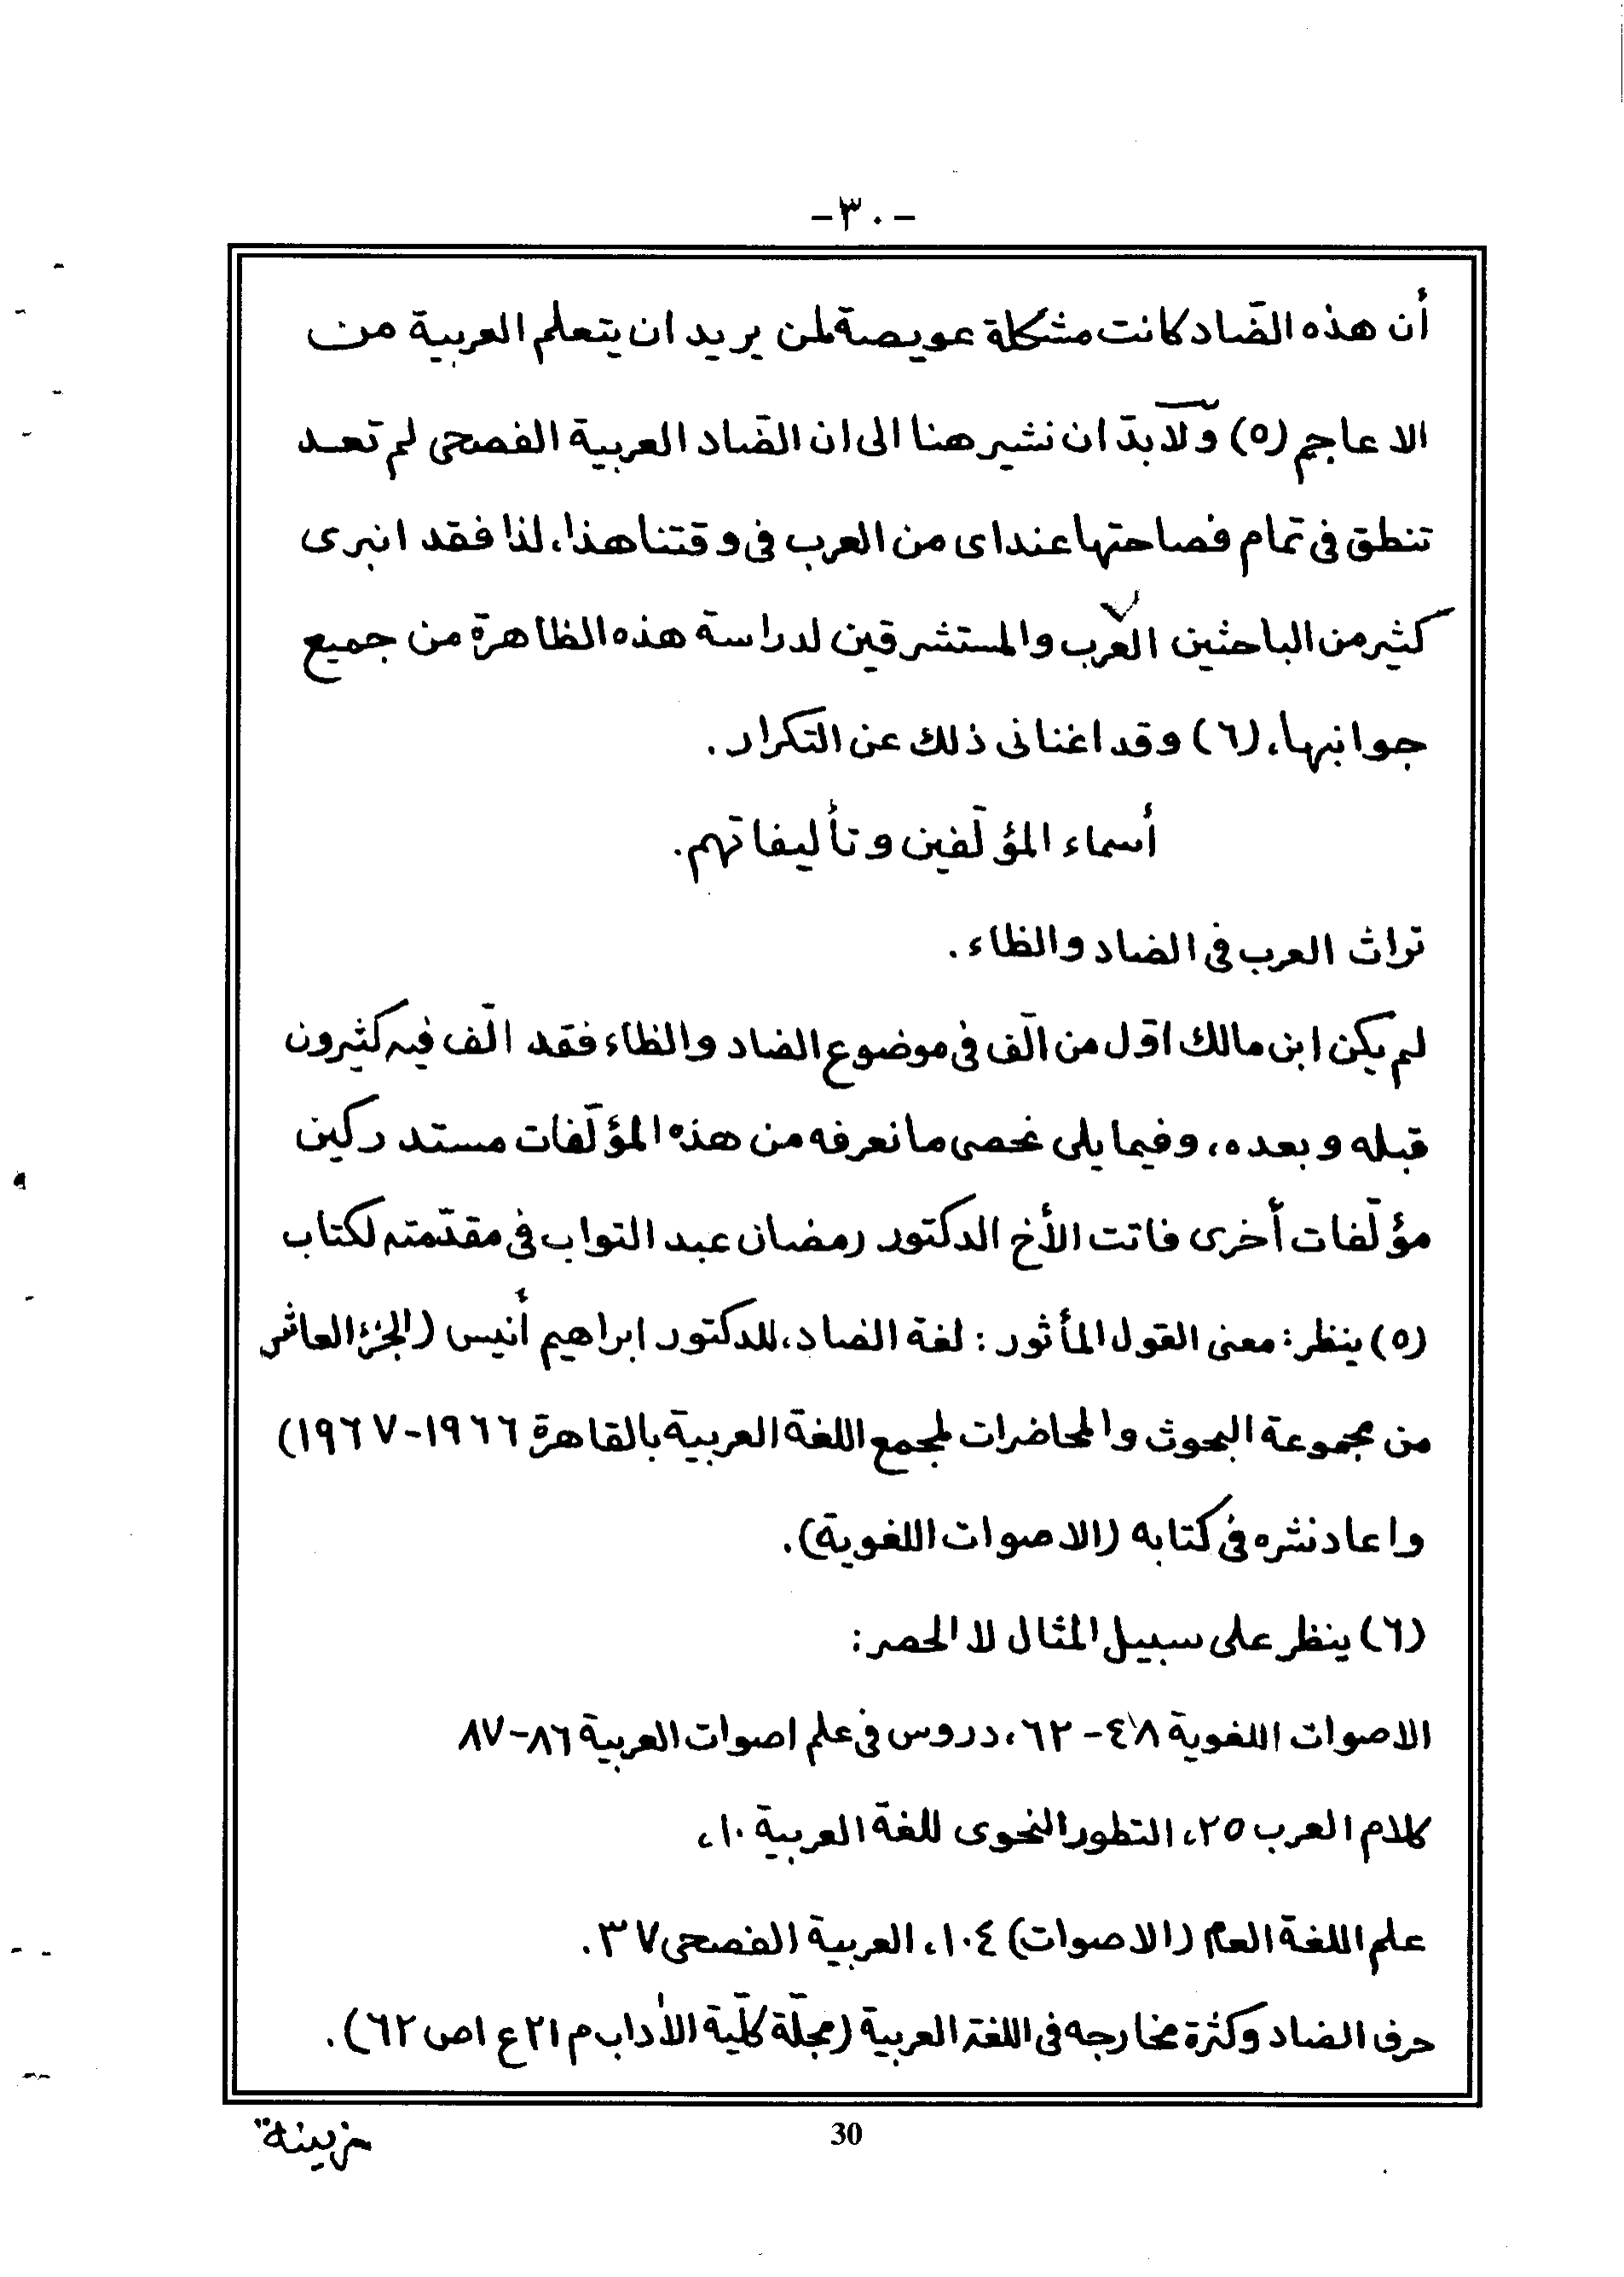 -٣٠-
أن هذه الضّاد كانت مشكلة عويصة لمن يريد ان يتعلم العربية من
الاعاجم (٥) ولابدّ ان نشير هنا الى ان الضّاد العربية الفصحى لم تعد
تنطق فى تمام فصاحتها عند اى من العرب فى وقتنا هذا، لذا فقد انبرى
كثير من الباحثين العرب والمستشرقين لدراسة هذه الظاهرة من جميع
جوانبها، (٦) وقد اغنانى ذلك عن التكرار.
أسماء المؤلّفين وتأليفاتهم.
تراث العرب فى الضاد والظاء.
لم يكن ابن مالك اوّل من الّف فى موضوع الضاد والظاء فقد الّف فيه كثيرون
قبله وبعده، وفيما يلى نحصى ما نعرفه من هذه المؤلّفات مستدركين
مؤلّفات أخرى فاتت الأخ الدكتور رمضان عبد التواب فى مقدّمته لكتاب
(٥) ينظر: معنى القول المأثور: لغة الضاد، للدكتور ابراهيم أنيس (الجزء العاشر
من مجموعة البحوث والمحاضرات لمجمع اللغة العربية بالقاهرة ١٩٦٦-١٩٦٧)
واعاد نشره فى كتابه (الاصوات اللغوية).
(٦) ينظر على سبيل المثال لا الحصر:
الاصوات اللغوية ٤٨-٦٢، دروس فى علم اصوات العربية ٨٦-٨٧
كلام العرب ٢٥، التطور النحوى للغة العربية ١٠،
علم اللغة العام (الاصوات) ١٠٤، العربية الفصحى ٣٧.
حرف الضاد وكثرة مخارجه فى اللغة العربية (مجلّة كلّية الأداب م ٢١ ع ١ ص ٦٢).
30
خزينة